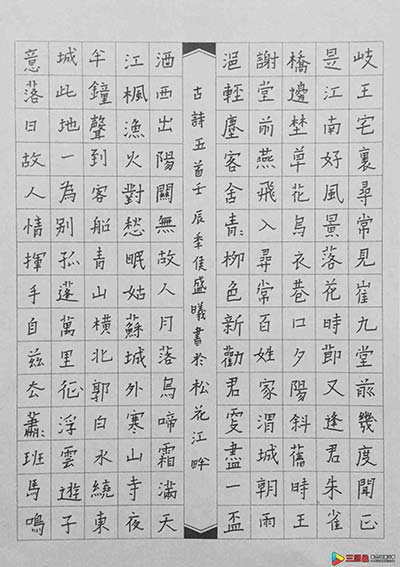 岐王宅裏尋常見崔九堂前幾度聞正
是江南好風景落花時節又逢君朱雀
橋邊埜草花烏衣巷口夕陽斜舊時王
謝堂前燕飛入尋常百姓家渭城朝雨
浥輕塵客舍青：柳色新勸君更盡一盃
古詩五首壬辰年侯盛曦書於松花江畔
酒西出陽關無故人月落烏啼霜滿天
江楓漁火對愁眠姑蘇城外寒山寺夜
半鐘聲到客船青山橫北郭白水繞東
城此地一為別孤蓬萬里征浮雲遊子
意落日故人情揮手自茲去蕭：班馬鳴
三原色